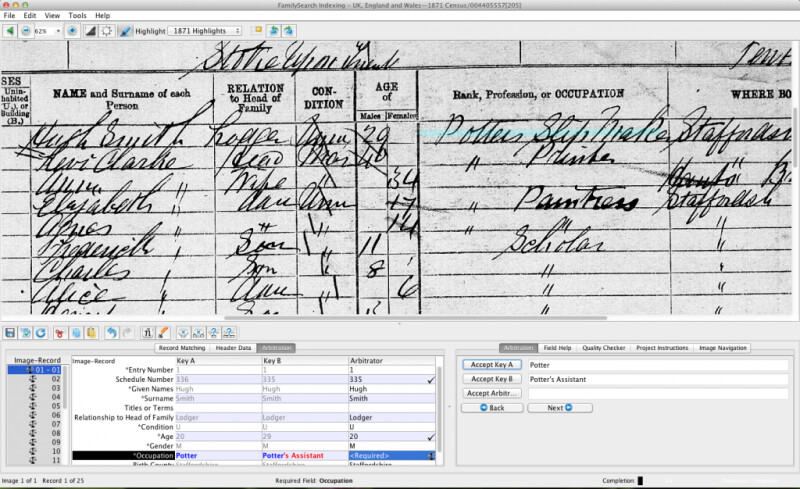 FamilySearch Indexing – UK, England and Wales—1871 Census/004405557[205]
File Edit View Tools Help
62% Highlight 1871 Highlights
Stoke Upon Trent
SES
Uninhabited (U.), or Building (B.)
NAME and Surname of each Person RELATION to Head of Family CONDITION AGE of Rank, Profession, or OCCUPATION WHERE BO
Males Females
Hugh Smith Lodger Unm 29 Potters Slip Maker Staffordsh
Levi Clarke Head Mar 40 " Printer "
Wife " 34
Elizabeth " Dau Unm 17 " Paintress Staffordsh
Agnes " " " 14 " " "
Frederick " Son " 11 Scholar "
Charles " Son " 8 " "
Alice " Dau " 6 " "
Record Matching Header Data Arbitration
Arbitration Field Help Quality Checker Project Instructions Image Navigation
Image-Record
01 - 01
02
03
04
05
06
07
08
09
10
11
Image-Record Key A Key B Arbitrator
*Entry Number 1 1 1
Schedule Number 336 335 335
*Given Names Hugh Hugh Hugh
*Surname Smith Smith Smith
Titles or Terms
Relationship to Head of Family Lodger Lodger Lodger
*Condition U U U
*Age 20 29 20
*Gender M M M
*Occupation Potter Potter's Assistant <Required>
Birth County Staffordshire Staffordshire Staffordshire
Accept Key A Potter
Accept Key B Potter's Assistant
Accept Arbitr...
Back Next
Image 1 of 1 Record 1 of 25 Required Field: Occupation Completion: